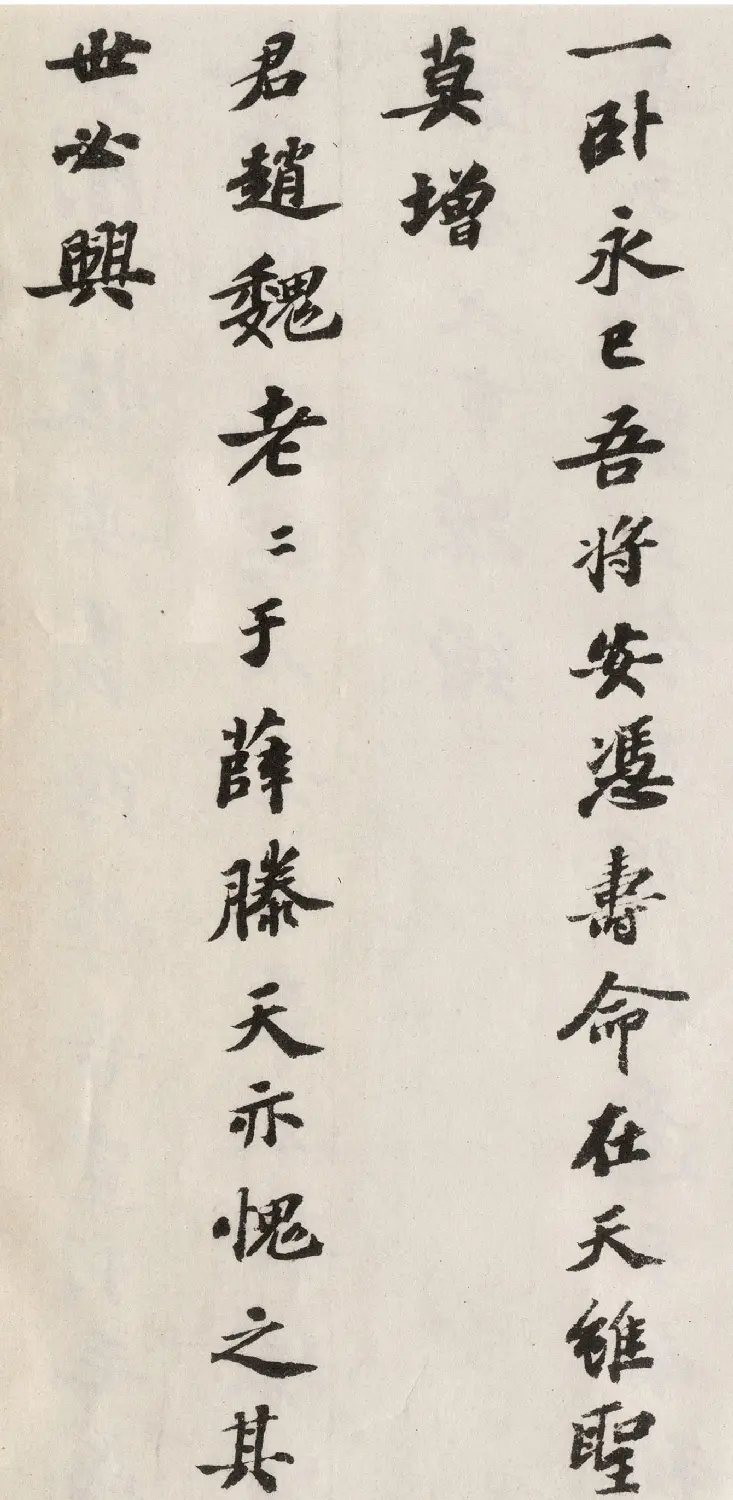 一卧永已吾將安憑壽命在天雖聖
莫增
君趙魏老二于薛滕天亦愧之其
世必興